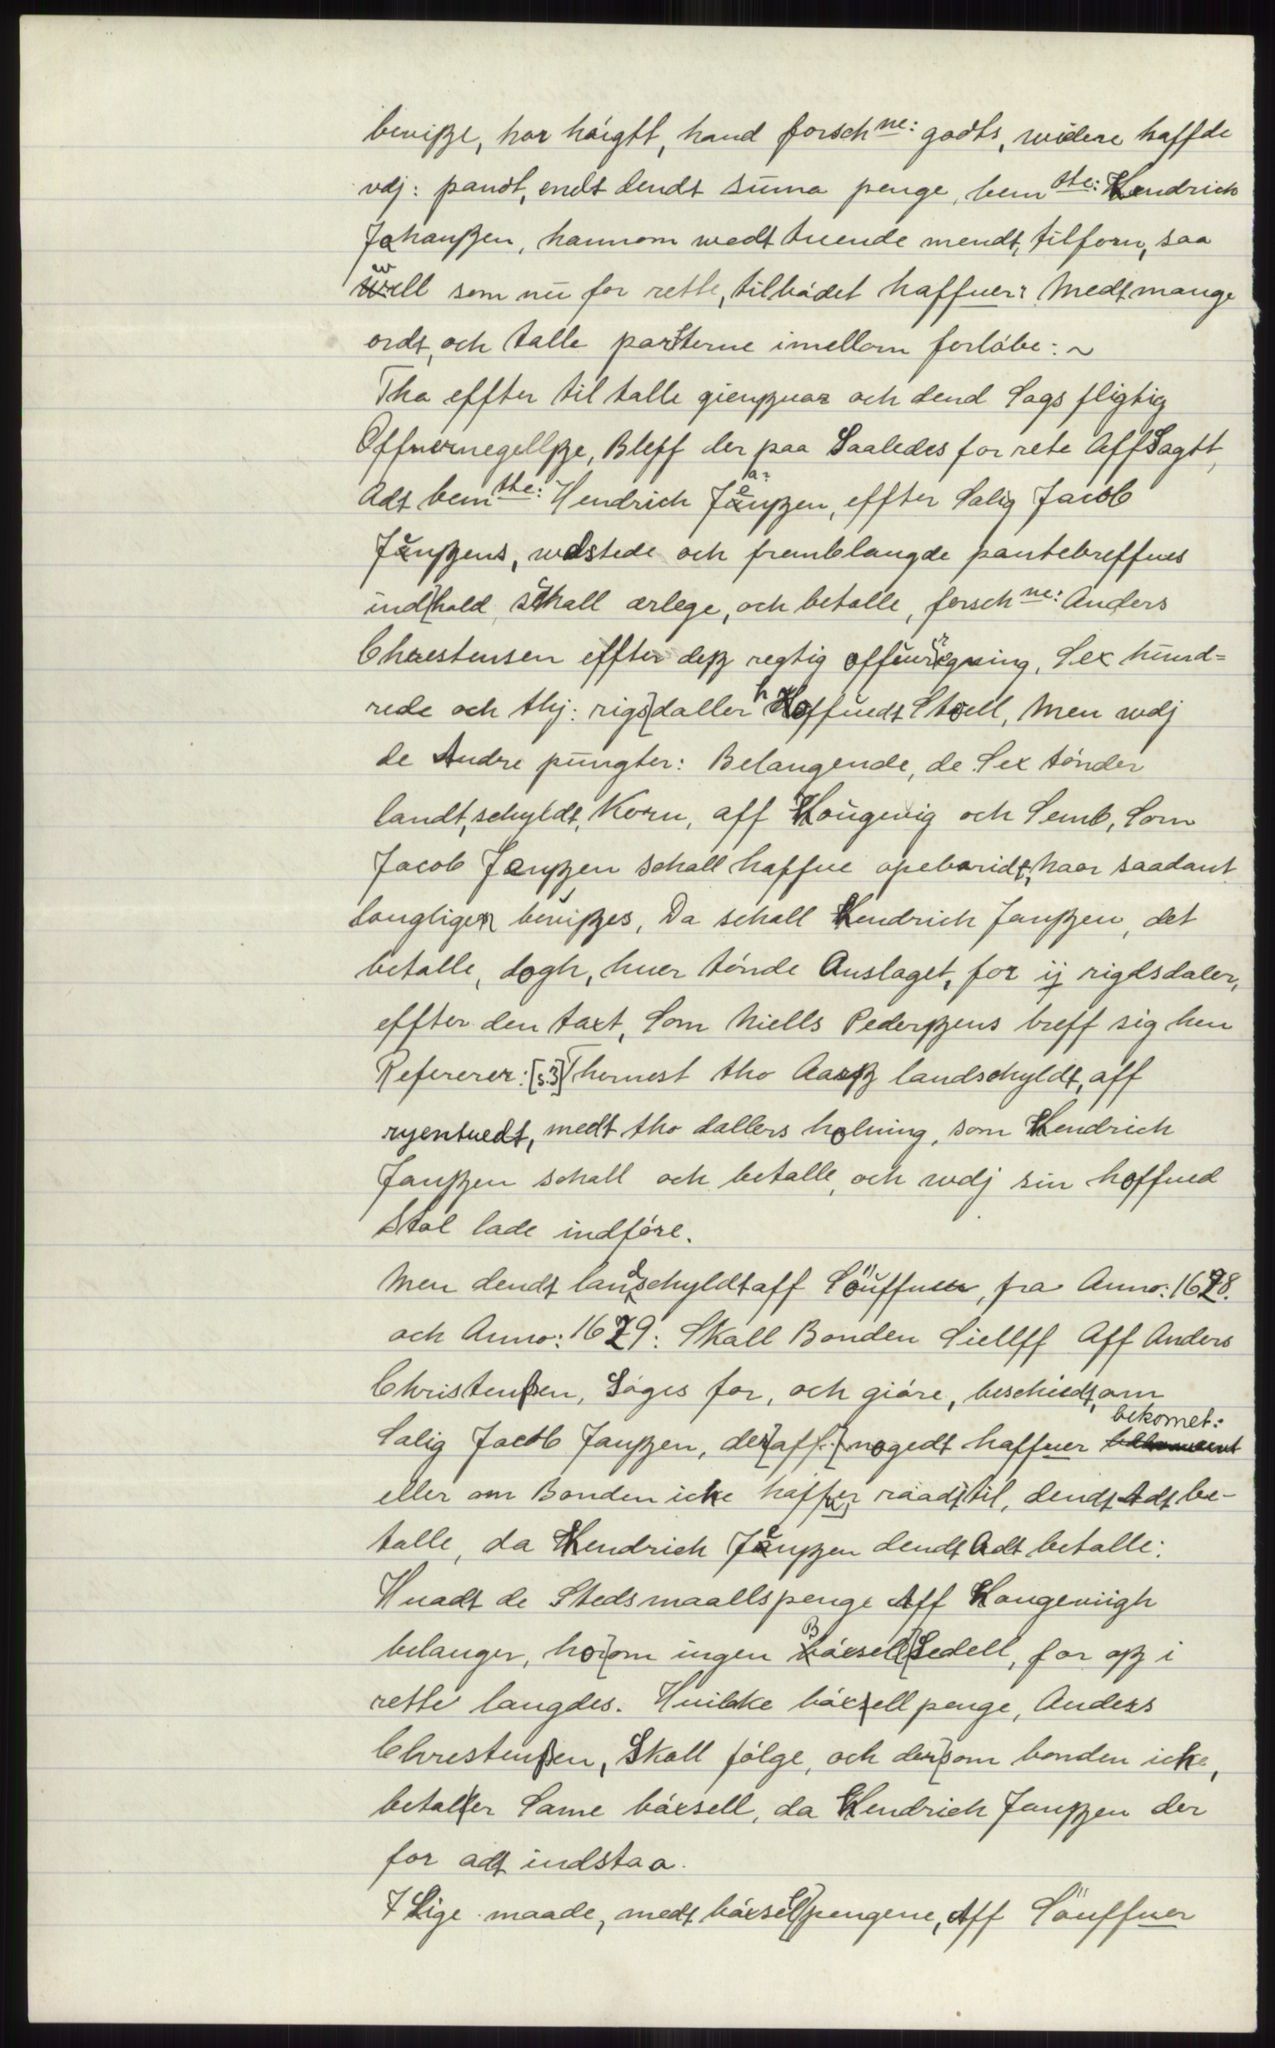 beviꞵe, hor höigtt, hand forsch ne: godts, widere haffde
vdj: pandt, endt dendt suma penge, bem the: Hendrich
Johanꞵen, hannom wedt tuende mendt, tilforn, saa
well som nu for rette, tilbödet haffuer: Medt mange
ordt, och talle parterne imellom forlöbe: ~
Tha effter til talle gienꞵuar och dend Sags fligtig
Offueruegellꞵe, Bleff der paa Saaledes for rete AffSagtt,
Adt bem the: Hendrich Janꞵen, effter Salig Jacob
Jenꞵens, wdstede och fremblangde pantebreffues
ind[hold, schall ærlege, och betalle, forsch ne: Anders
Chrestensen effter deꞵ regtig offuuregning, Sex hund=
rede och thj: rigs[daller hoffuedt Stoell, Men wdj
de Andre pungter: Belangende, de Sex tönder
landt,schyldt, Korn, aff Hougevig och Semb, Som
Jacob Jenꞵen schall haffue opebaridt, haar saadant
langligen beviꞵes, Da schall Hendrich Janꞵen, det
betalle, dogh, huer tönde Anslaget, for ij rigdsdaler,
effter den taxt, Som Niells Pederꞵens breff sig hen
Refererer: [s.3] Thernest tho Aarꞵ landschyldt, aff
ryentuedt, medt tho dallers holning, som Hendrich
Janꞵen schall och betalle, och wdj sin hoffued
Stol lade indföre.
Men dendt landschyldt aff Söuffuer, fra Anno: 1678.
och Anno: 1679: Skall Bonden Siellff Aff Anders
Christenꞵen, Söges for, och giöre, beschiedt, om
Salig Jacob Janꞵen, der[aff [nogedt haffuer bekomet:
eller om Bonden icke haffuer raadt til, dendt Adt be-
talle, da Hendrich Jenꞵen dendt Adt betalle:
Huadt de Stedsmaallspenge Aff Hougeviigh
belanger, hor[om ingen Böxsell[Sedell, for oꞵ i
rette langdes. Huilcke böxsell penge, Anders
Chrestenꞵen, Skall fölge, och der[som bonden icke,
betaller Same böxsell, da Hendrich Janꞵen der
for adt indstaa.
I Lige maade, medt böxsell[pengene, Aff Söuffuer